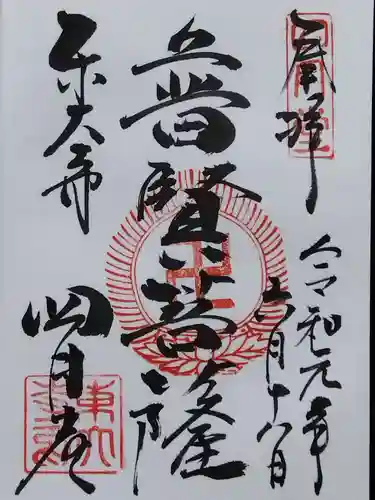 奉拝
令和元年
六月十八日
普賢菩薩
東大寺
四月堂